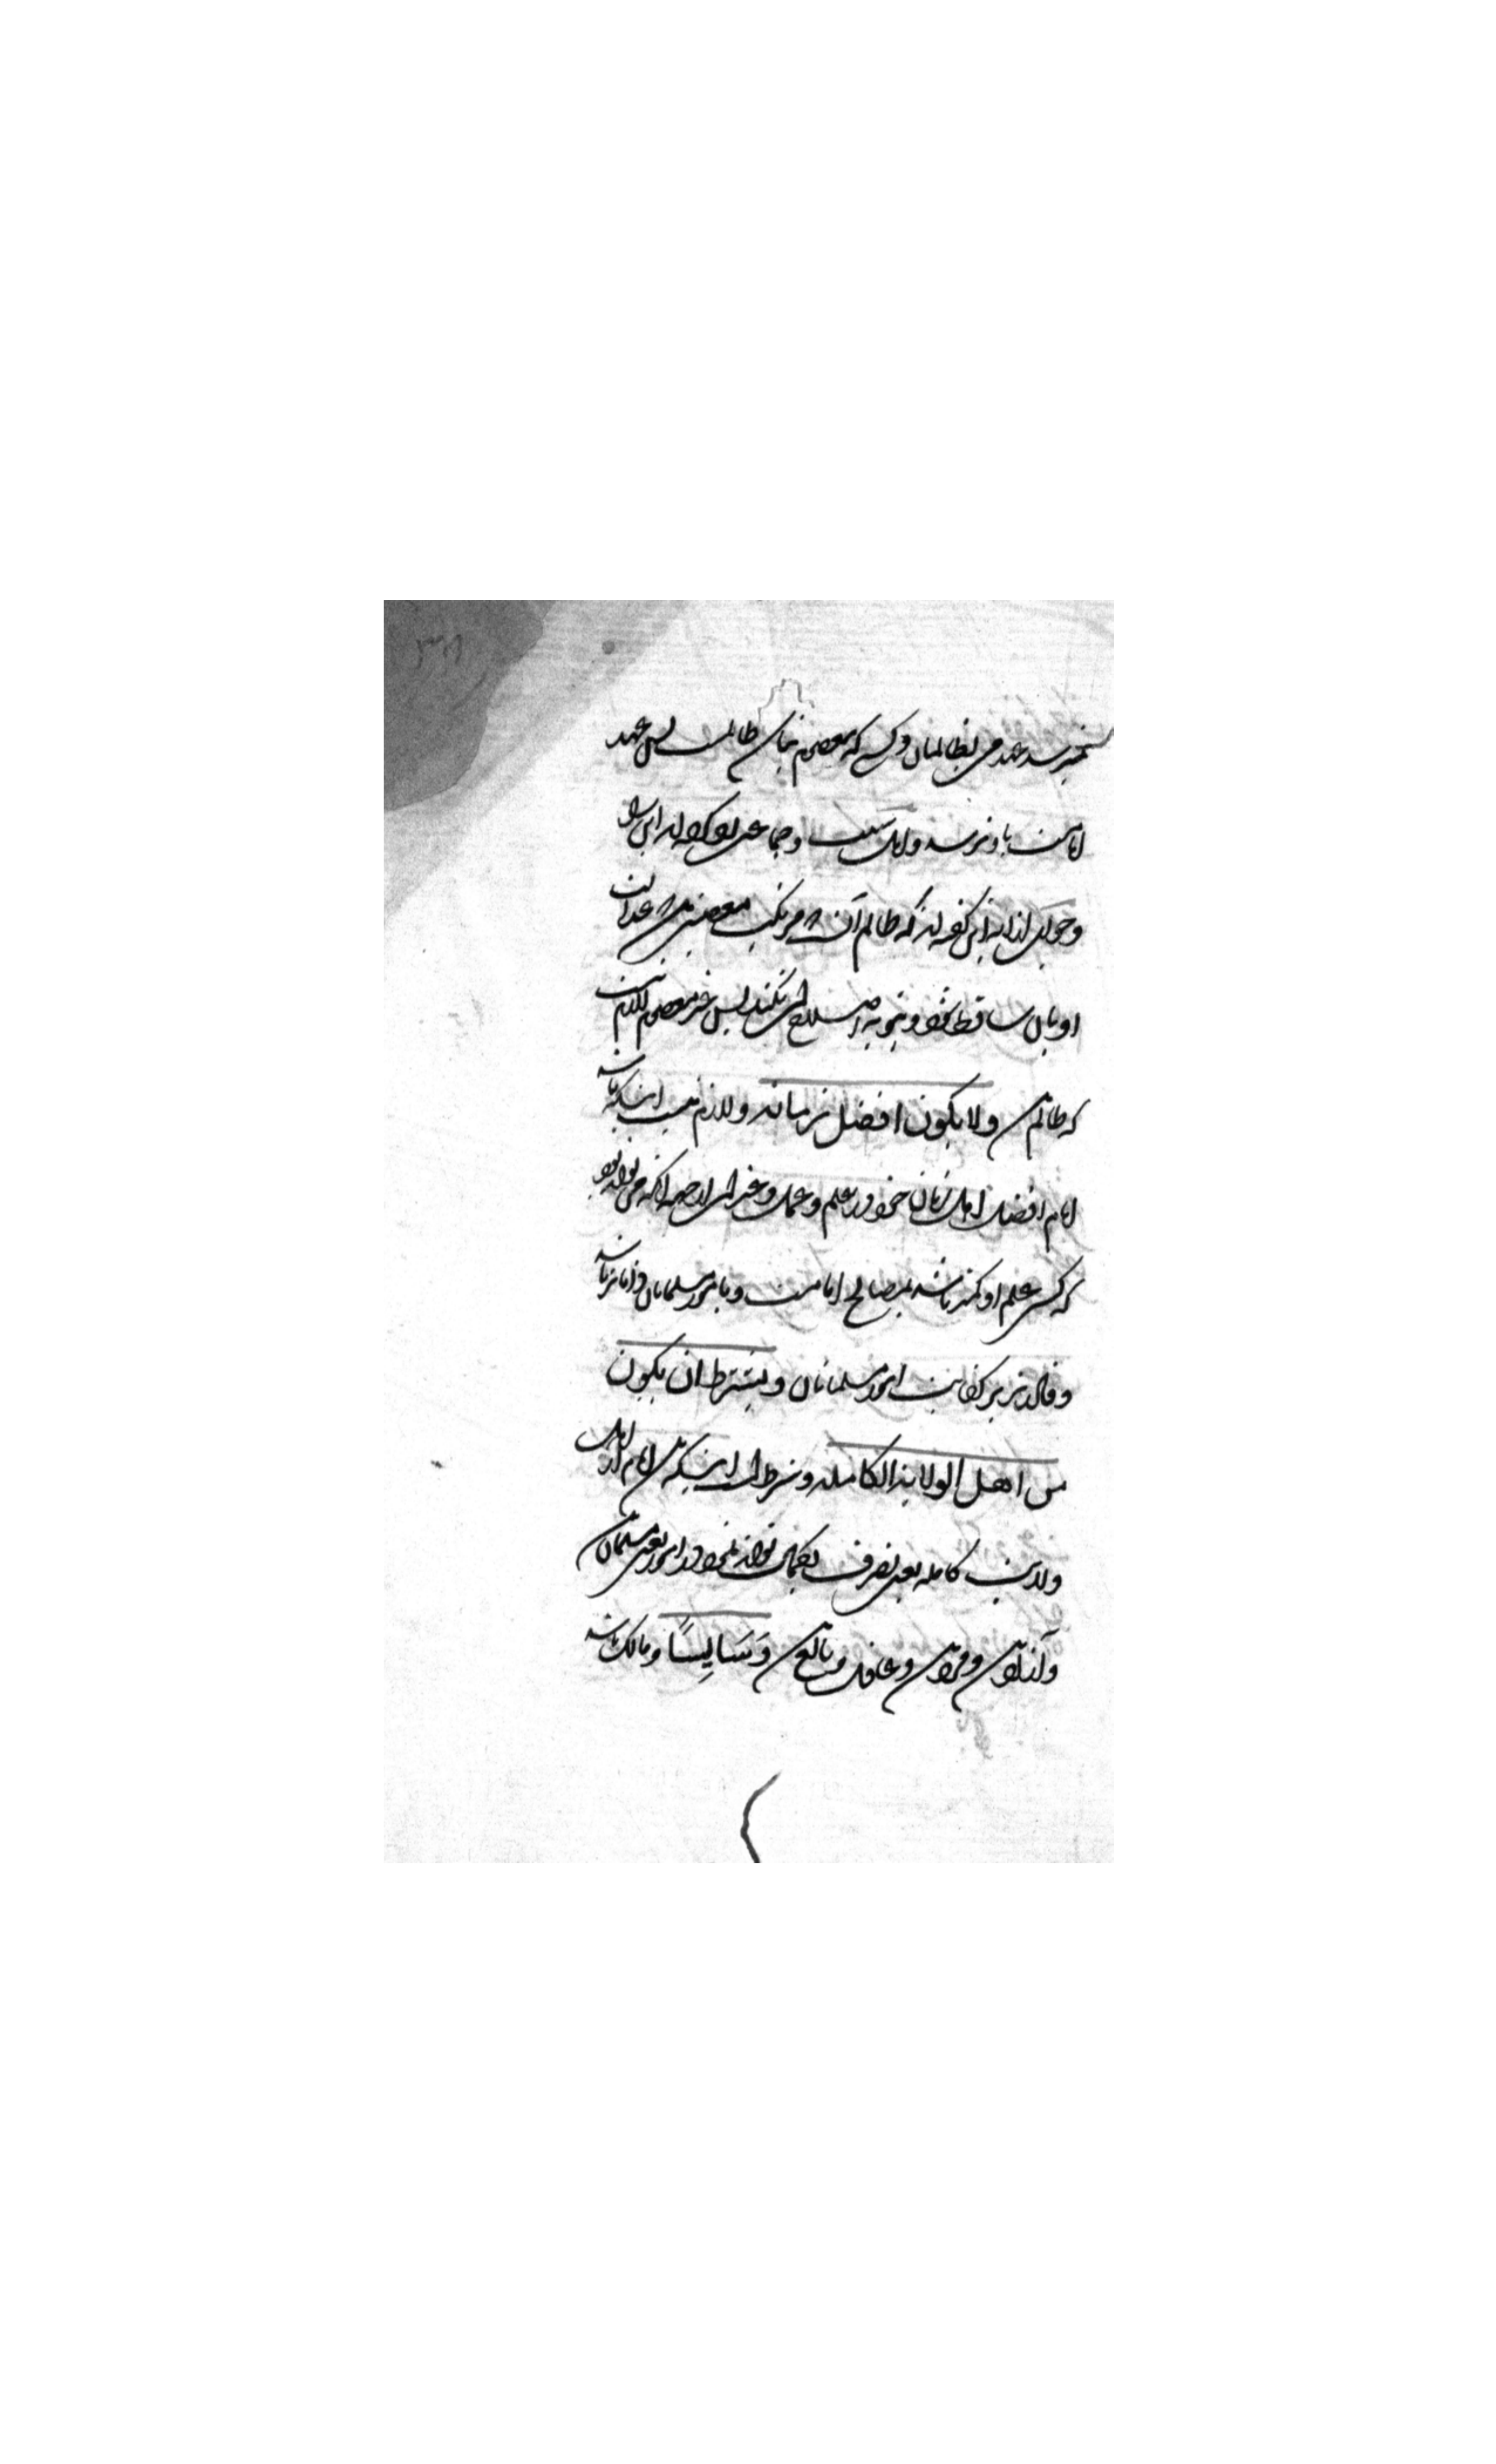 نمیرسد عهد من بظالمان و کسی که معصوم نباشد ظالمست پس عهد
امامت باو نرسد و لایق نیست و جماعتی
و جواب از ایه این گفته اند که ظالم آن مرتکب معصیتی عدالت
او بآن ساقط شود و توبه اصلاح آن نکند پس غیر معصوم لازم نیست
که ظالم باشد ولا یکون افضل زمانه و لازم نیست اینکه باشد
امام افضل اهل زمان خود در علم و عمل و غیر آن از جهة آنکه می تواند بود
که کسی علم او کمتر باشد بمصالح امامت و بامور مسلمانان داناتر باشد
و قادرتر بر کفایت امور مسلمانان و یشترط ان یکون
من اهل الولایة الکاملة و شرط است اینکه باشد امام از اهل
ولایت کامله یعنی تصرف بکمال تواند نمود در امور یعنی مسلمان
و آزاد و مرد و عاقل و بالغ وَسَایِسًا و مالک باشد